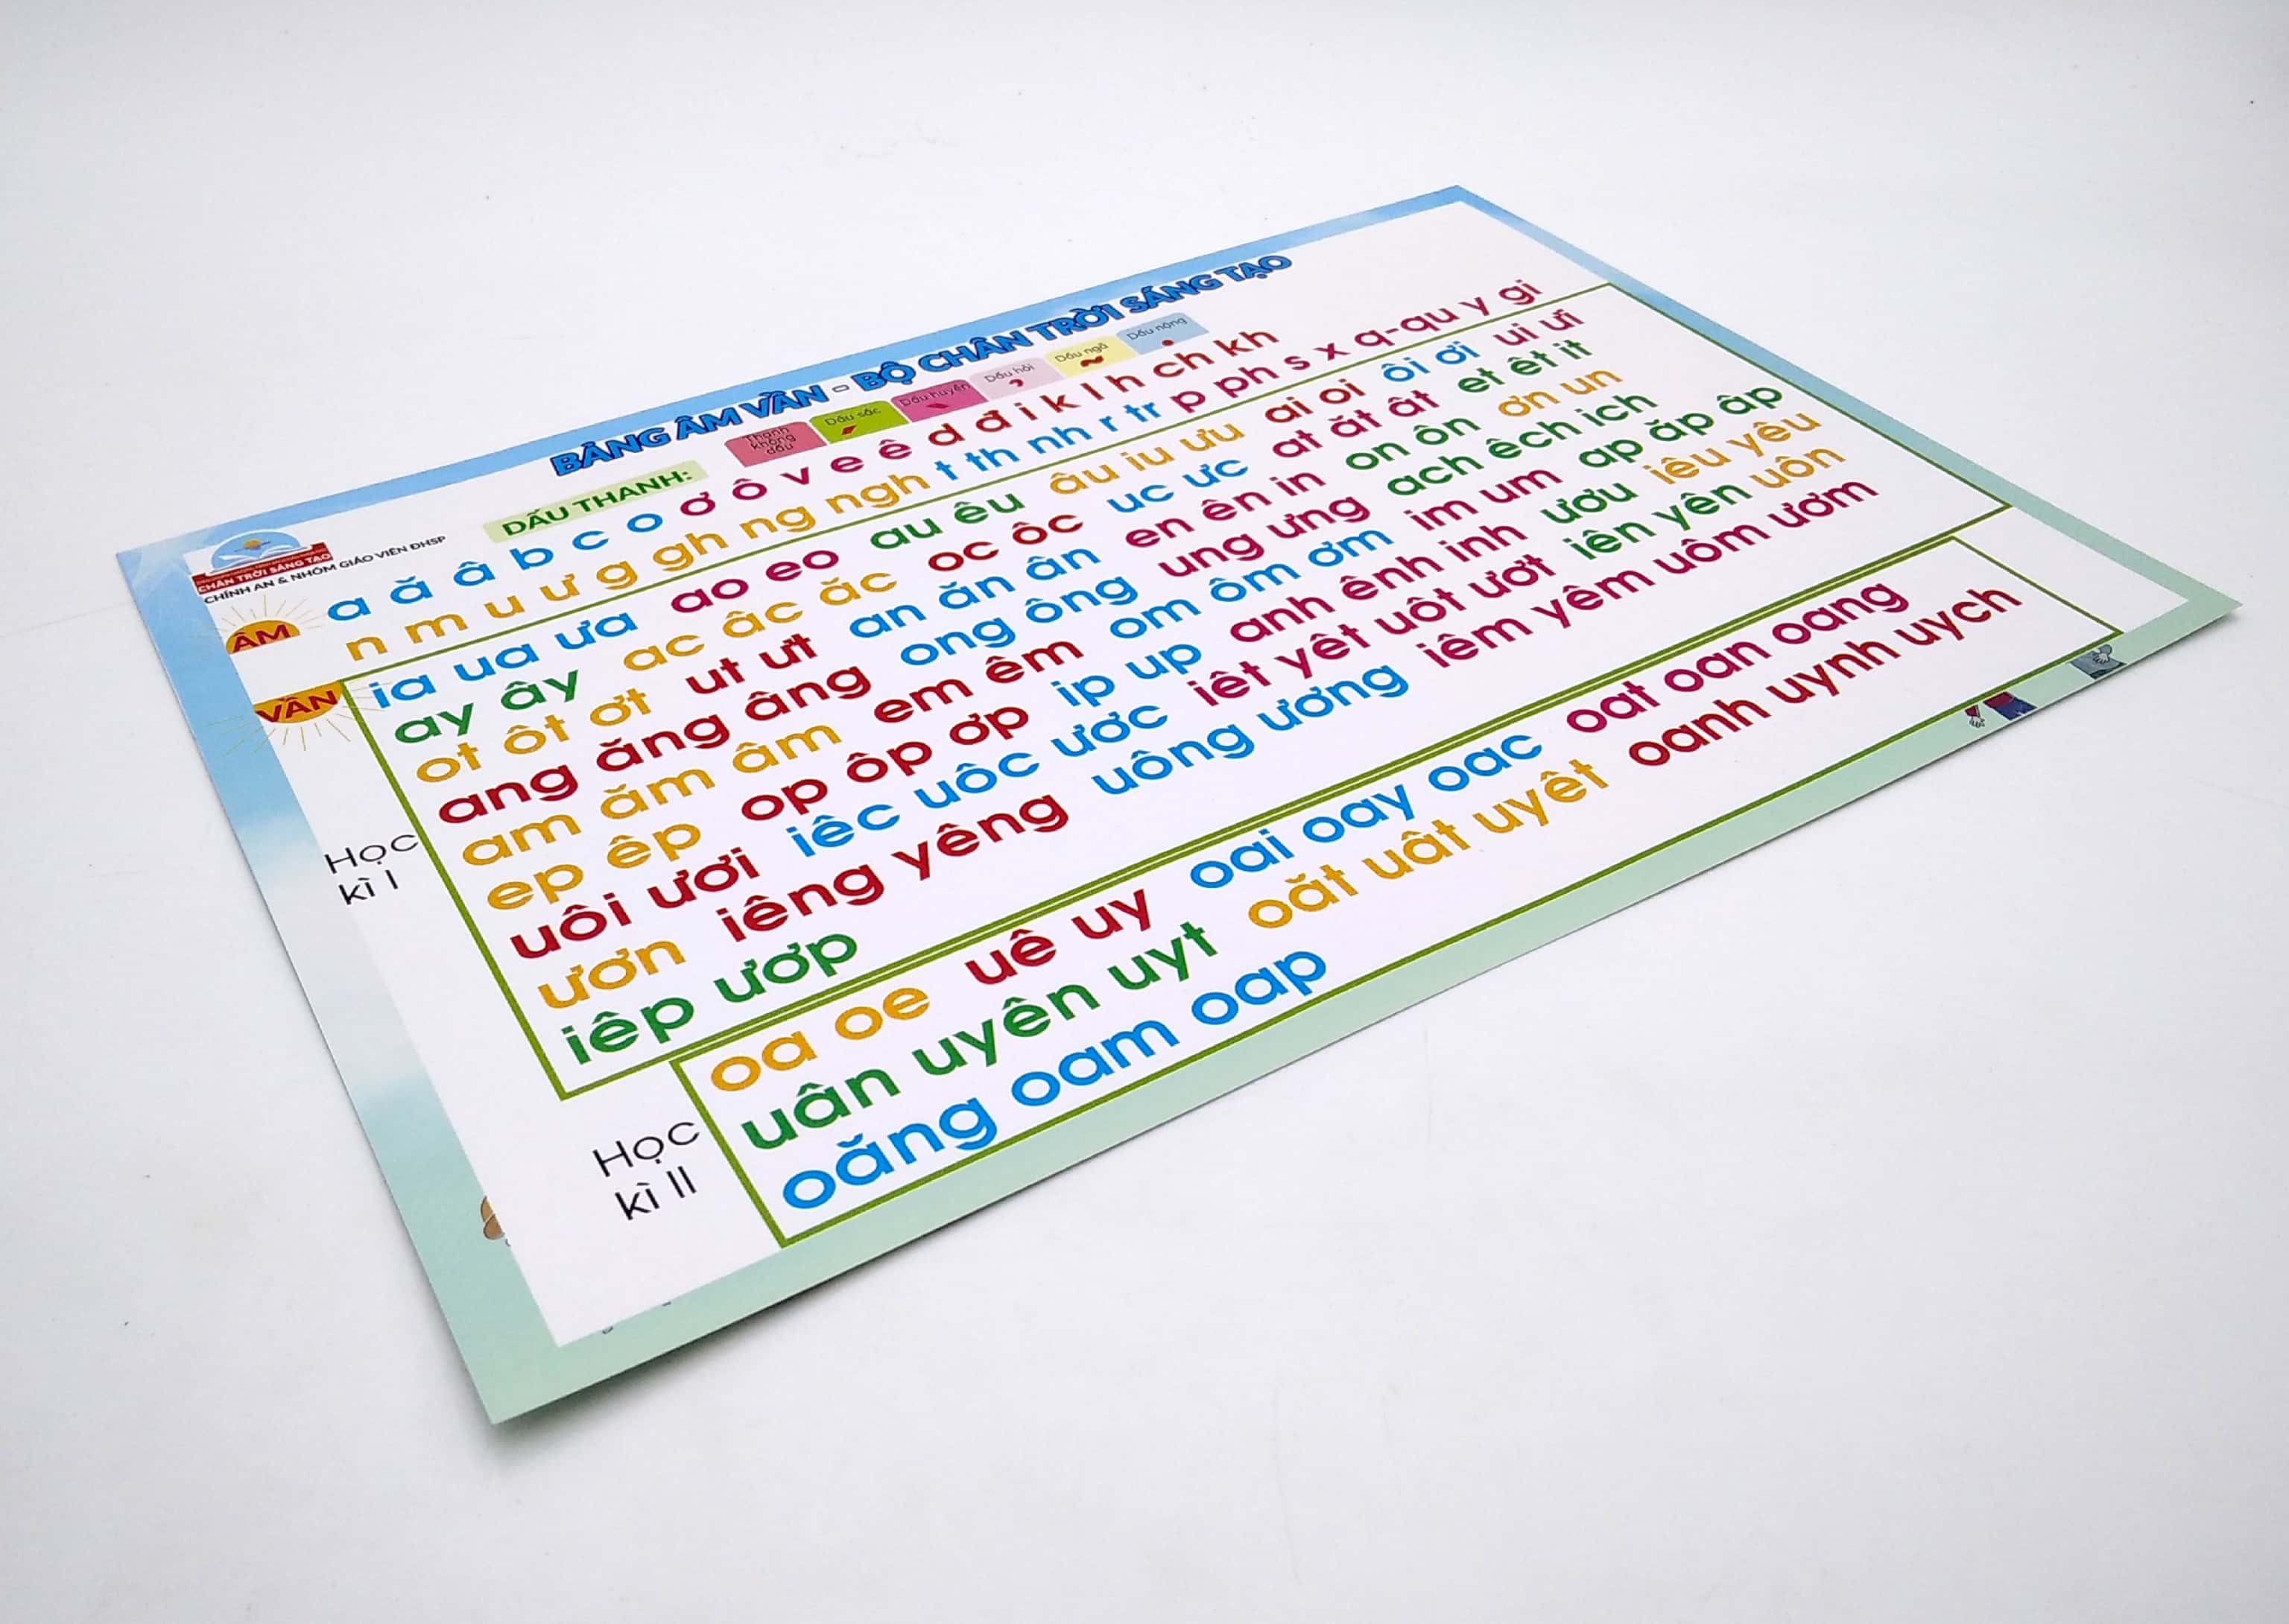 BẢNG ÂM VẦN - BỘ CHÂN TRỜI SÁNG TẠO
CHÂN TRỜI SÁNG TẠO
CHÍNH AN & NHÓM GIÁO VIÊN ĐHSP
DẤU THANH:
Thanh không dấu Dấu sắc Dấu huyền Dấu hỏi Dấu ngã Dấu nặng
ÂM
a ă â b c o ơ ô v e ê d đ i k l h ch kh
n m u ư g gh ng ngh t th nh r tr p ph s x q-qu y gi
VẦN
Học kì I
ia ua ưa ao eo au êu âu iu ưu ai oi ôi ơi ui ưi
ay ây ac âc ăc oc ôc uc ưc at ăt ât et êt it
ot ôt ơt ut ưt an ăn ân en ên in on ôn ơn un
ang ăng âng ong ông ung ưng ach êch ich
am ăm âm em êm om ôm ơm im um ap ăp âp
ep êp op ôp ơp ip up anh ênh inh ươu iêu yêu
uôi ươi iêc uôc ươc iêt yêt uôt ươt iên yên uôn
ươn iêng yêng uông ương iêm yêm uôm ươm
iêp ươp
Học kì II
oa oe uê uy oai oay oac oat oan oang
uân uyên uyt oăt uât uyêt oanh uynh uych
oăng oam oap